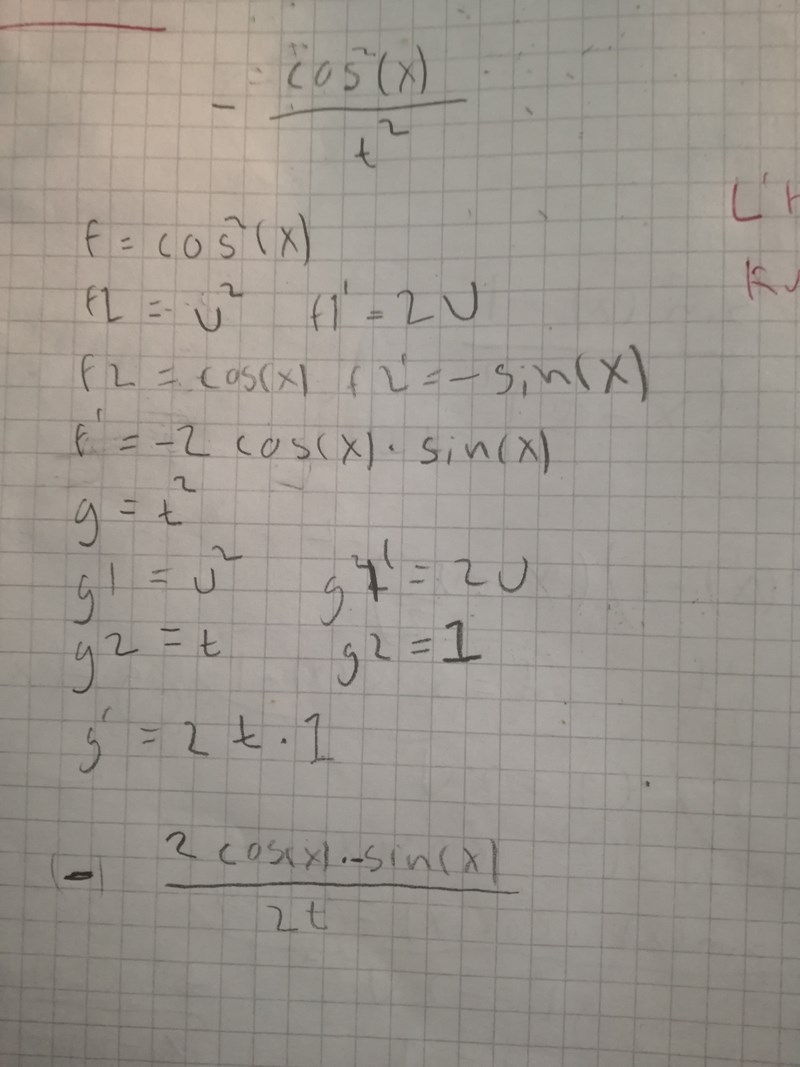 - cos²(x)
t²
L'
f = cos²(x)
f1 = u² f1' = 2u
f2 = cos(x) f2' = -sin(x)
f' = -2 cos(x) · sin(x)
g = t²
g1 = u² g1' = 2u
g2 = t g2 = 1
g' = 2t · 1
(-) 2 cos(x) · -sin(x)
2t